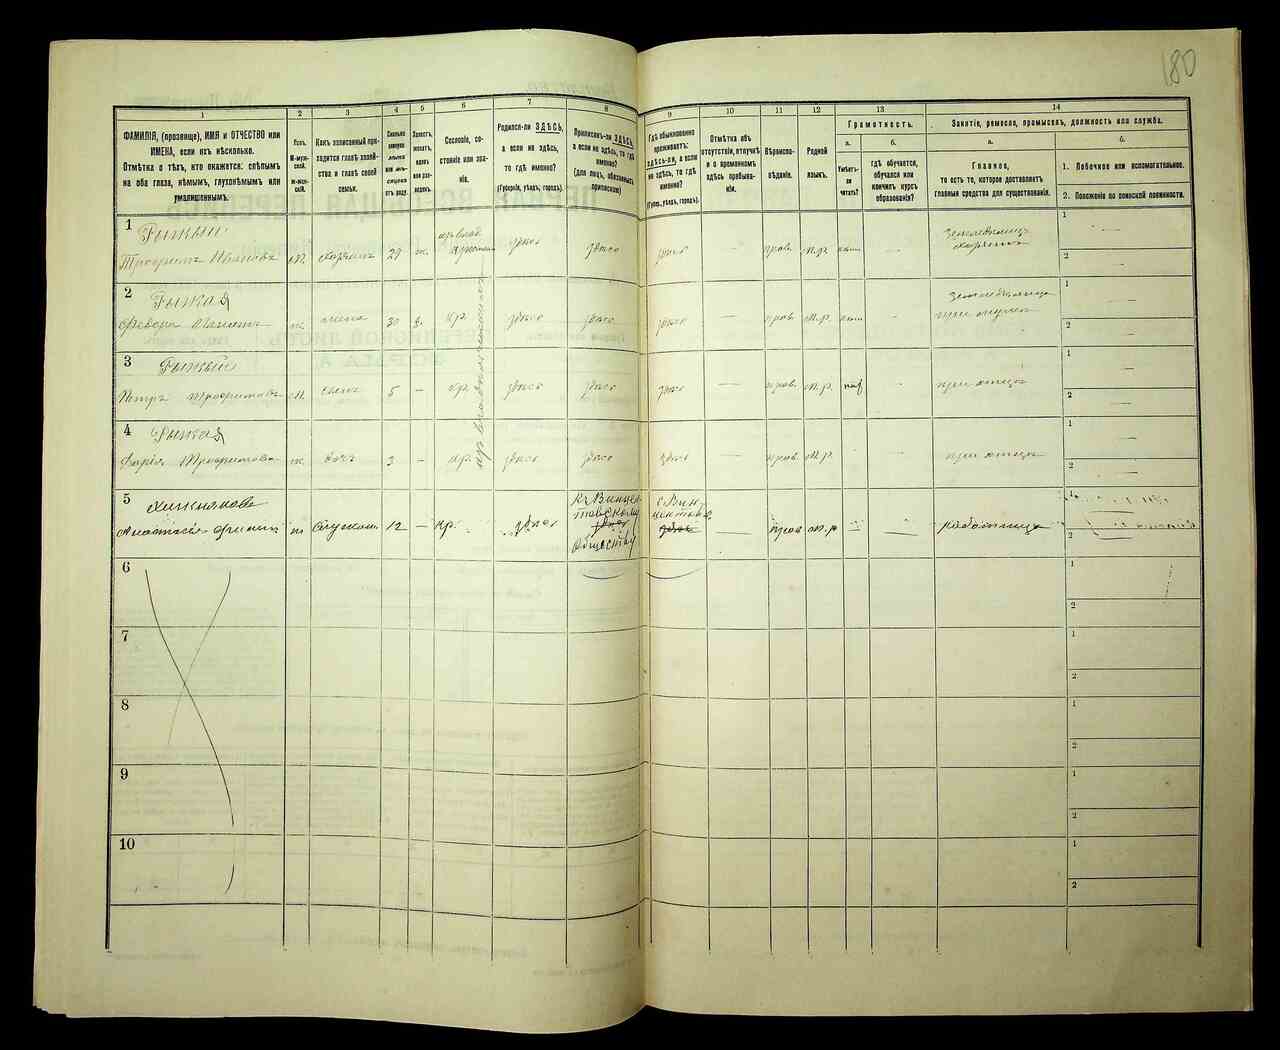 180
1
2
3
4
5
6
7
8
9
10
11
12
13
14
ФАМИЛІЯ, (прозвище), ИМЯ и ОТЧЕСТВО или
ИМЕНА, если ихъ нѣсколько.
Отмѣтка о тѣхъ, кто окажется: слѣпымъ
на оба глаза, нѣмымъ, глухонѣмымъ или
умалишеннымъ.
Полъ.
М-муж-
ской.
Ж-жен-
скій.
Какъ записанный при-
ходится главѣ хозяй-
ства и главѣ своей
семьи.
Сколько
минуло
лѣтъ
или мѣ-
сяцевъ
отъ роду.
Холостъ,
женатъ,
вдовъ
или раз-
веденъ.
Сословіе, со-
стояніе или зва-
ніе.
Родился-ли ЗДѢСЬ,
а если не здѣсь,
то гдѣ именно?
(Губернія, уѣздъ, городъ).
Приписанъ-ли ЗДѢСЬ,
а если не здѣсь, то гдѣ
именно?
(для лицъ, обязанныхъ
припискою)
Гдѣ обыкновенно
проживаетъ:
здѣсь-ли, а если
не здѣсь, то гдѣ
именно?
(Губерн., уѣздъ, городъ).
Отмѣтка объ
отсутствіи, отлучкѣ
и о временномъ
здѣсь пребыва-
ніи.
Вѣроиспо-
вѣданіе.
Родной
языкъ.
Грамотность.
а.
б.
Умѣетъ-
ли
читать?
гдѣ обучается,
обучался или
кончилъ курсъ
образованія?
Занятіе, ремесло, промыселъ, должность или служба.
а.
б.
Главное,
то есть то, которое доставляетъ
главныя средства для существованія.
1. Побочное или вспомогательное.
2. Положеніе по воинской повинности.
1
Рыжый
Трофимъ Ивановъ
м.
хозяинъ
29
ж.
здѣсь
здѣсь
здѣсь
—
прав.
м.р.
—
хозяинъ
1
—
2
—
2
Рыжая
ж.
жена
30
з.
кр.
здѣсь
здѣсь
здѣсь
—
прав
м.р.
—
при мужѣ
1
—
2
—
3
Рыжый
Петръ Трофимовъ
м.
сынъ
5
—
кр.
здѣсь
здѣсь
здѣсь
—
прав.
м.р.
—
при отцѣ
1
—
2
—
4
Рыжая
Дарія Трофимова
ж.
дочь
3
—
кр.
здѣсь
здѣсь
здѣсь
—
прав
м.р.
—
при отцѣ
1
—
2
—
5
Анастасія
ж
12
—
кр.
здѣсь
къ Винцен-
товскому
здѣсь
обществу
с. Вин-
центовка
здѣсь
—
прав
м.р
—
—
работница
2
6
1
2
7
1
2
8
1
2
9
1
2
10
1
2